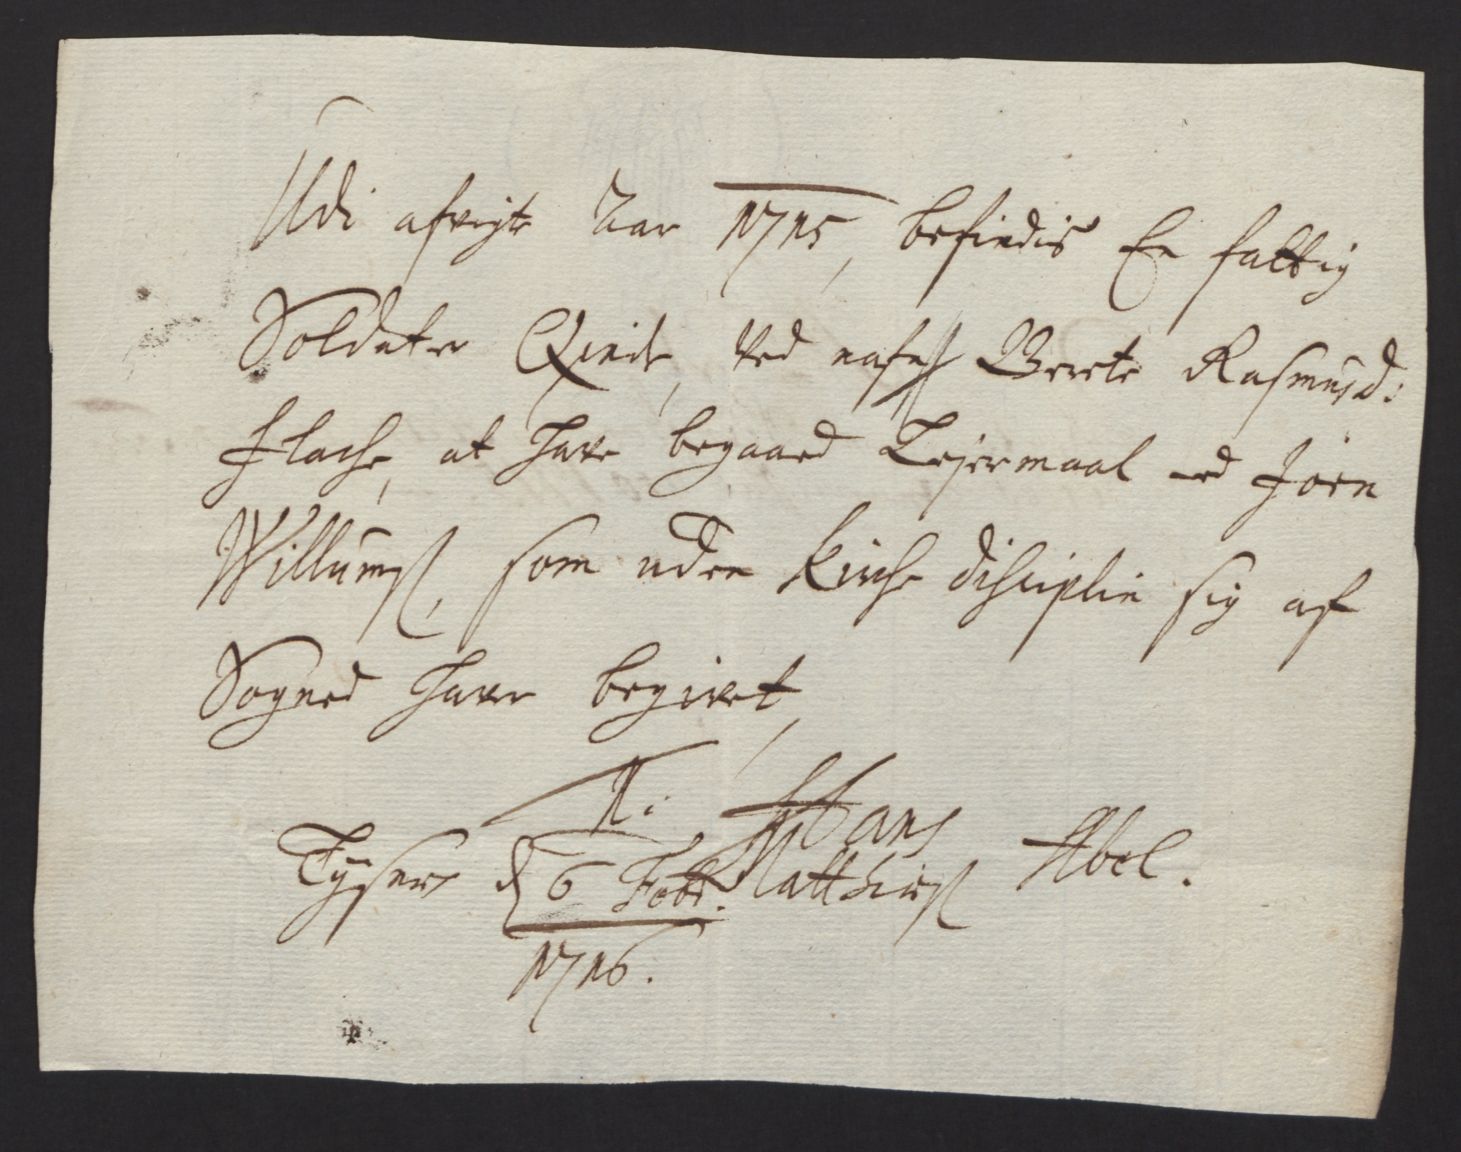 Udi afvigte Aar 1715, befindis En fattig
Soldater Qvinde, ved nafn Berete Rasmusd:
Flache, at have begaaed Lejermaal med Jören
Willumss, som uden Kirche disciplin sig af
Sogned haver begivet,
N: Hans
Tysnes d 6 Febr. Matthiess Abel.
1716.